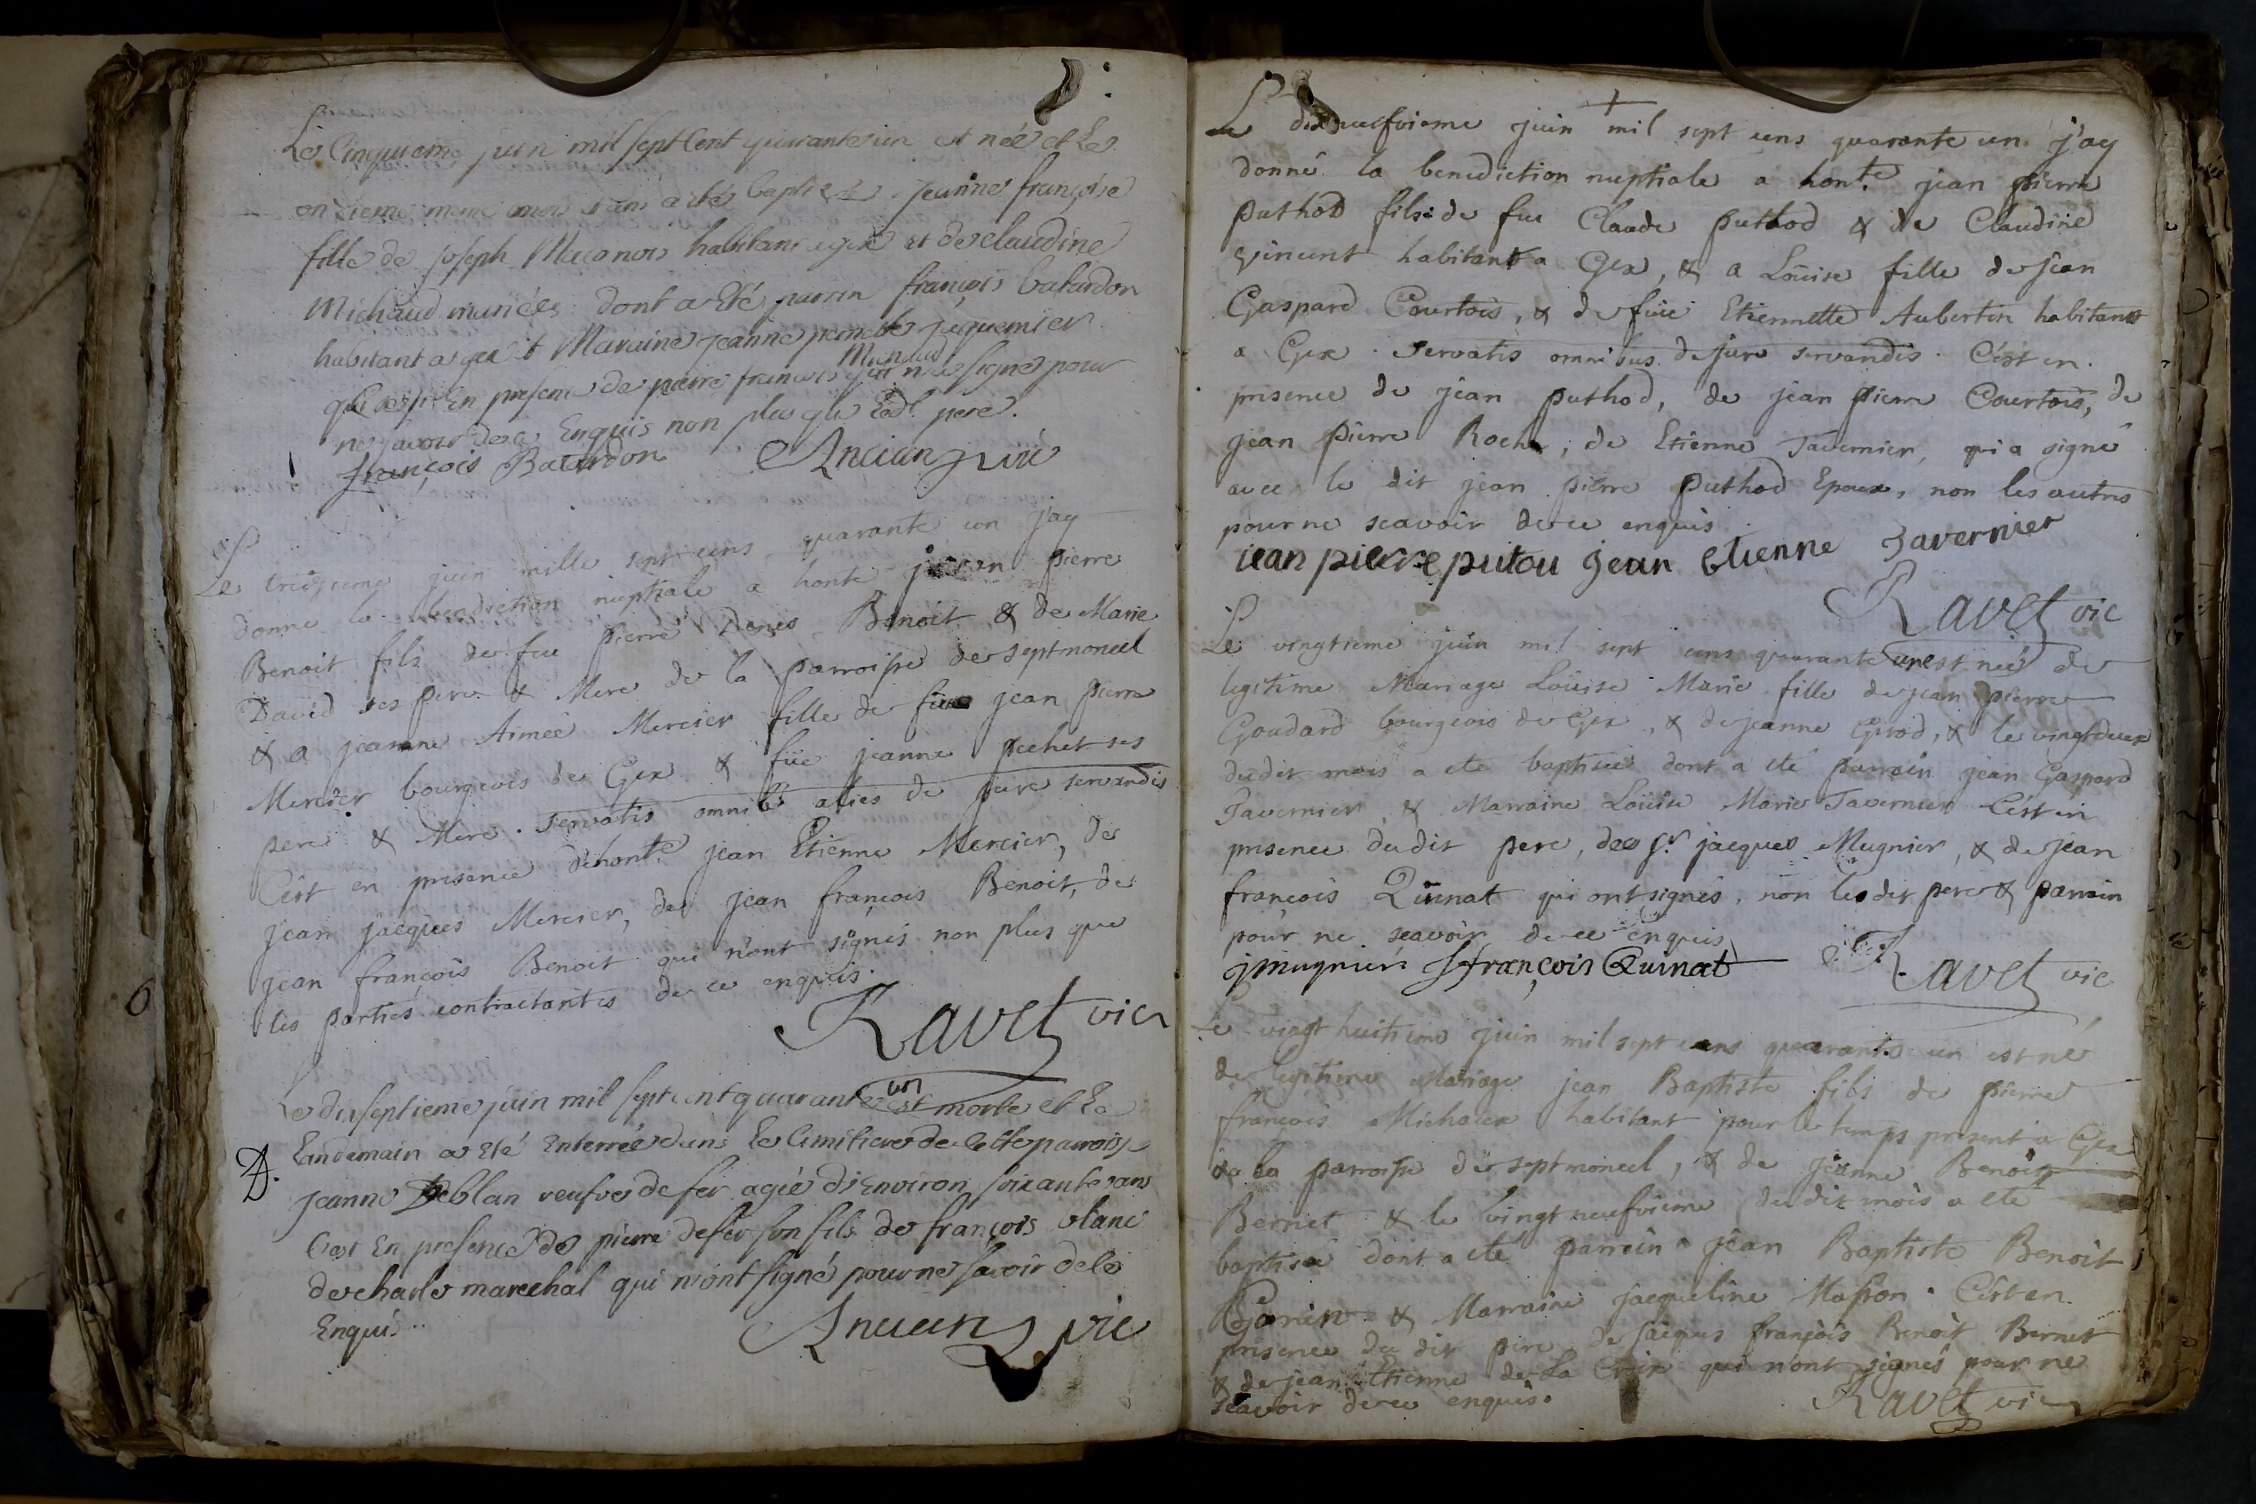 Le Cinquieme juin mil sept Cent quarante un est née et Le
onzieme meme mois a été baptisée Jeanne françoise
fille de joseph habitant a gex et de claudine
Michaud mariées dont a Eté parrin françois batardon
habitant a gex et Maraine jeanne pernette jaquemier
En presence de pierre françois Michaud qui n'a signé pour
ne savoir de ce Enquis non plus que Led. père.
françois Batardon Ancian vic
Le treizieme juin mille sept cens quarante un j'ay
donné la benediction nuptiale a honte jean pierre
Benoit fils de feu pierre Denis Benoit & de Marie
David ses pere & Mere de la parroisse de septmoncel
& a jeanne Aimée Mercier fille de feu jean pierre
Mercier bourgeois de Gex & füe jeanne pechet ses
pere & Mere. servatis omnib aliis de jure servandis
C'est en presence d'honte jean Etienne Mercier, de
jean jacques Mercier, de jean françois Benoit, de
jean françois Benoit qui n'ont signés non plus que
les parties contractantes de ce enquis.
Ravet vic
Le dixseptieme juin mil sept cent quarante un est morte et Le
Landemain a Eté Enterrée dans Le Cimitiere de cette parroisse
D.
jeanne Leblan veufve defer agée d'Environ soixante ans
C'est En presence de pierre defer son fils de françois blanc
de charle marechal qui n'ont signé pour ne savoir de ce
Enquis
Ancian vic
Le dixneufvieme juin mil sept cens quarante un j'ay
donné la benediction nuptiale a honte. jean pierre
puthod fils de feu Claude puthod & de Claudine
vincent habitant a Gex, & a Loüise fille de jean
Gaspard Courtois, & de füe Etiennette Aubertin habitant
a Gex. servatis omnibus de jure servandis. C'est en
presence de jean puthod, de jean pierre Courtois, de
jean pierre Roch, de Etienne Tavernier, qui a signé
avec le dit jean pierre puthod Epoux, non les autres
pour ne scavoir de ce enquis
iean pierre putou jean Etienne Tavernier
Ravet vic
Le vingtieme juin mil sept cens quarante un est née de
legitime Mariage Loüise Marie fille de jean pierre
Goudard bourgeois de Gex, & de jeanne Girod, & le vingtdeux
dudit mois a eté baptisée dont a eté parrain jean Gaspard
Tavernier & Marraine Loüise Marie Tavernier C'est en
presence dudit pere, des sr. jacques Mugnier, & de jean
françois Quinat qui ont signés, non les dit pere & parrain
pour ne scavoir de ce enquis
j mugnier J françois Quinat Ravet vic
Le vingt huitieme juin mil sept cens quarante un est né
de legitime Mariage jean Baptiste fils de pierre
françois Michaux habitant pour le temps present a Gex
de la parroisse de septmoncel, & de jeanne Benoit
Bernet & le vingt neufvieme du dit mois a eté
baptisé dont a eté parrain jean Baptiste Benoit
& Marraine jacqueline Masson. C'est en
presence du dit pere, de jacques françois Benoit Bernet
& de jean Etienne de La Croix qui n'ont signés pour ne
scavoir de ce enquis. Ravet vic